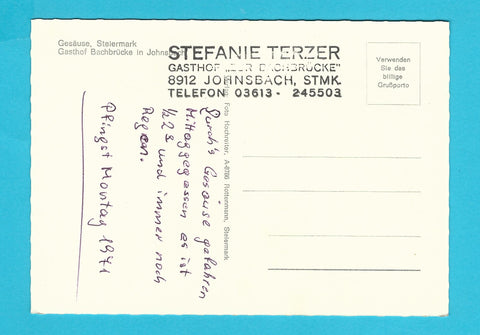 Gesäuse, Steiermark
Gasthof Bachbrücke in Johnsbach
STEFANIE TERZER
GASTHOF „ZUR BACHBRÜCKE"
8912 JOHNSBACH, STMK.
TELEFON 03613 - 245503
Verwenden
Sie das
billige
Grußporto
Foto Hochreiter, A-8786 Rottenmann, Steiermark
Durch's Gesäuse gefahren
Mittaggegessen es ist
½2 und immer noch
Regen.
Pfingst Montag 1971